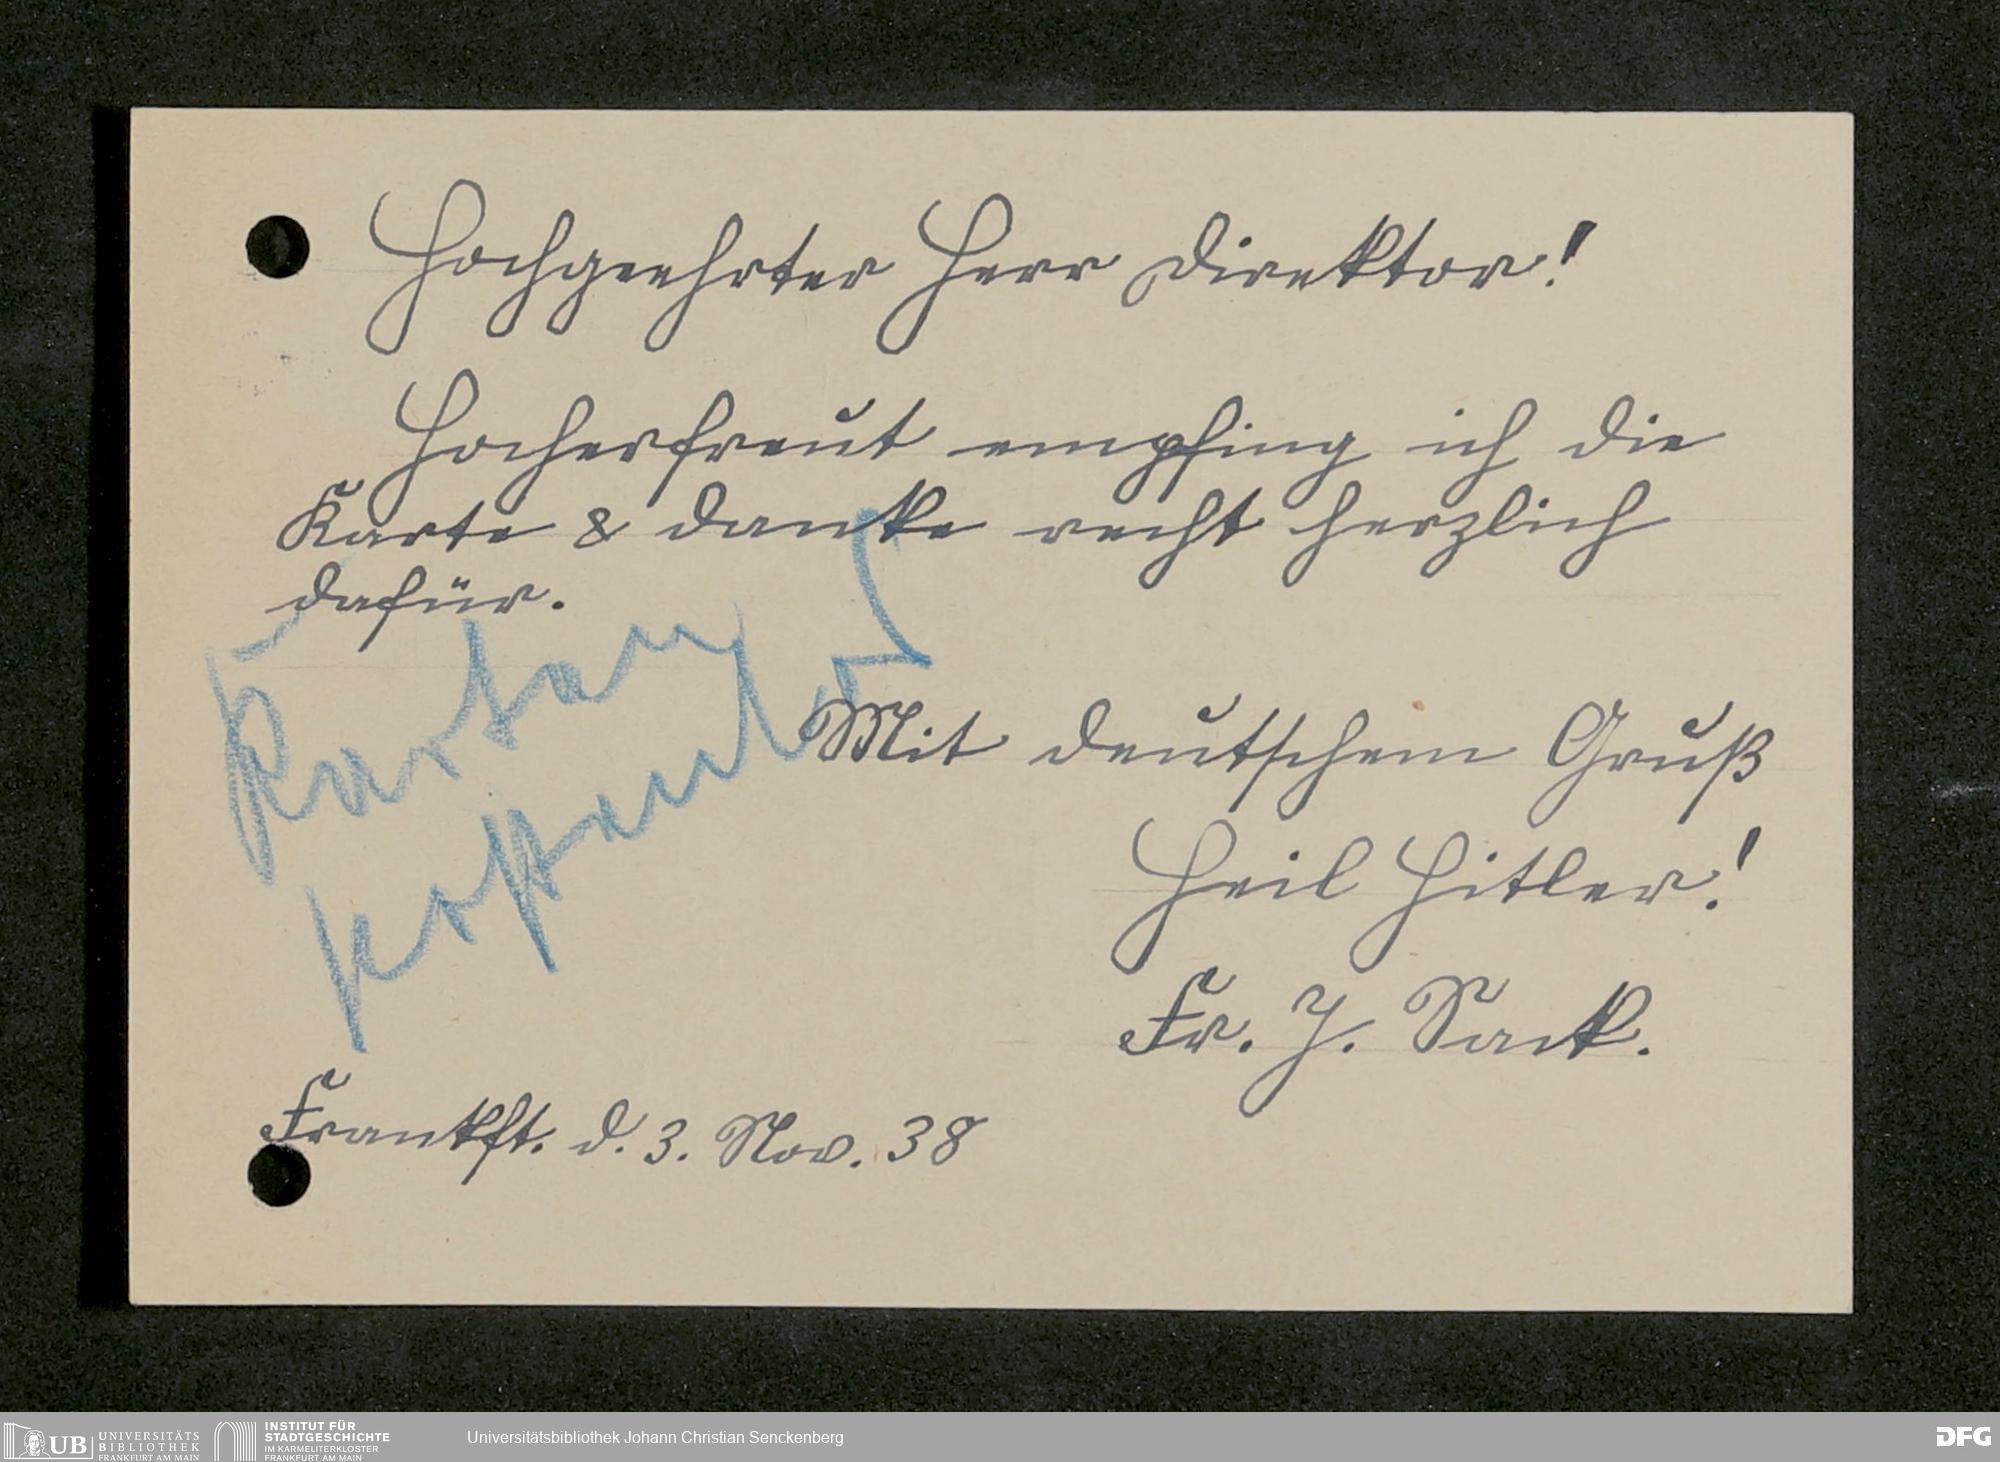 Hochgeehrter Herr Direktor!
Hocherfreut empfing ich die
Karte & danke recht herzlich
dafür.
Mit deutschem Gruß
Heil Hitler!
Fr. J. Sack.
Frankft. d. 3. Nov. 38
Karten
UB UNIVERSITÄTS
BIBLIOTHEK
FRANKFURT AM MAIN
INSTITUT FÜR
STADTGESCHICHTE
IM KARMELITERKLOSTER
FRANKFURT AM MAIN
Universitätsbibliothek Johann Christian Senckenberg
DFG